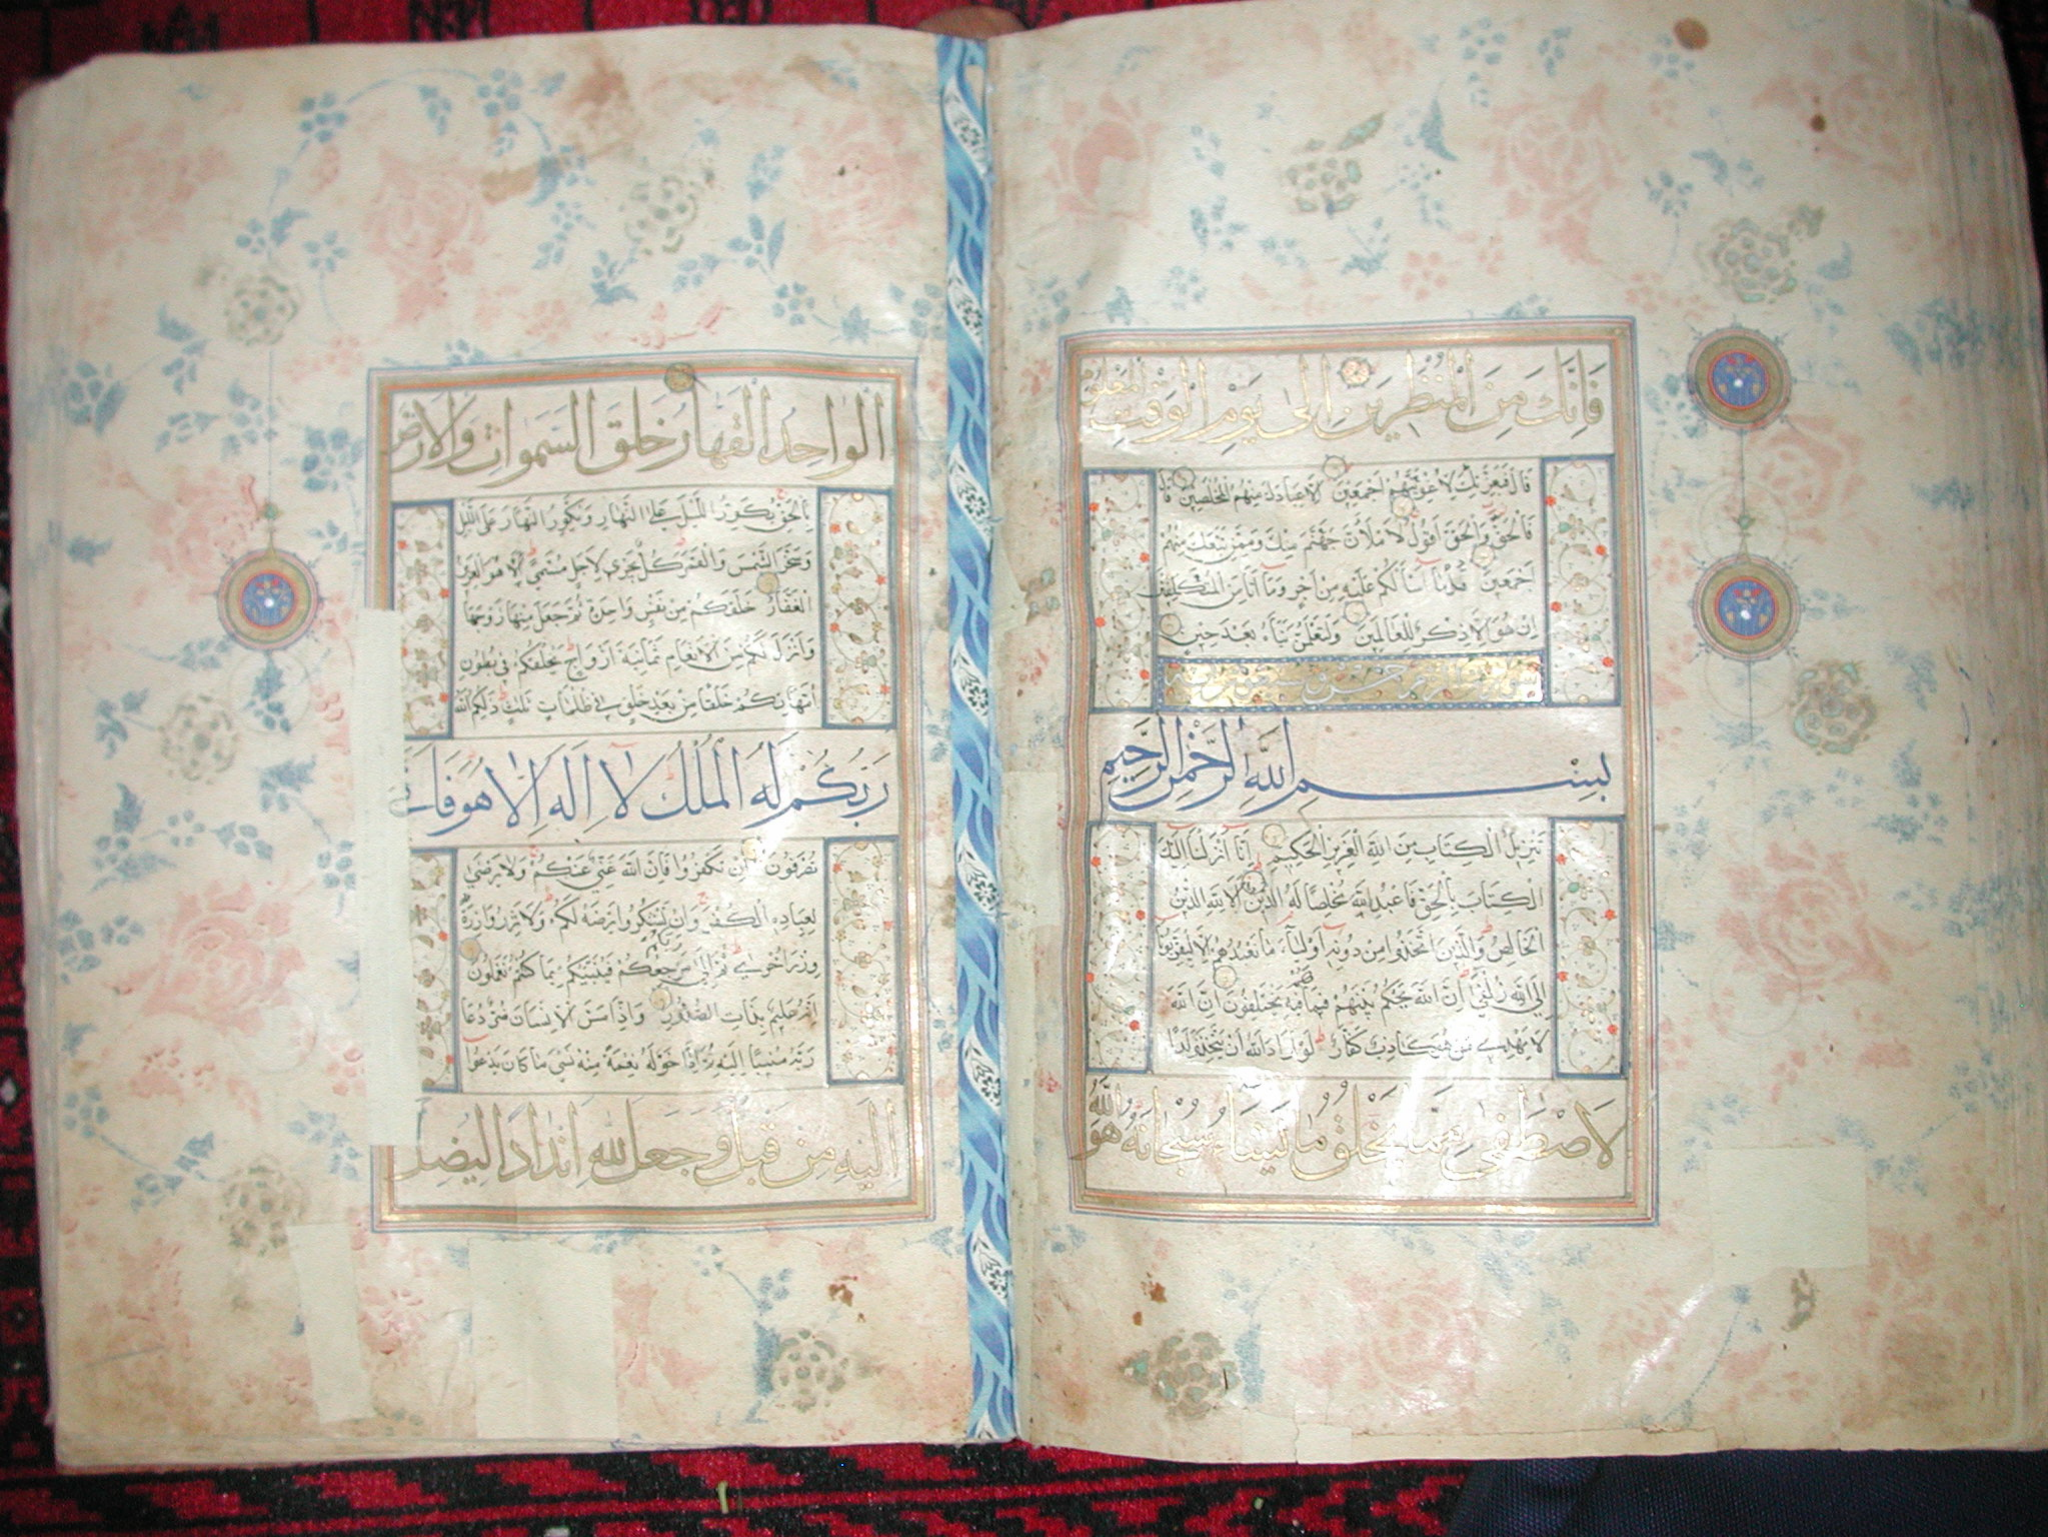 فَإِنَّكَ مِنَ الْمُنْظَرِينَ إِلَىٰ يَوْمِ الْوَقْتِ الْمَعْلُومِ
قَالَ فَبِعِزَّتِكَ لَأُغْوِيَنَّهُمْ أَجْمَعِينَ إِلَّا عِبَادَكَ مِنْهُمُ الْمُخْلَصِينَ قَالَ
فَالْحَقُّ وَالْحَقَّ أَقُولُ لَأَمْلَأَنَّ جَهَنَّمَ مِنْكَ وَمِمَّنْ تَبِعَكَ مِنْهُمْ
أَجْمَعِينَ قُلْ مَا أَسْأَلُكُمْ عَلَيْهِ مِنْ أَجْرٍ وَمَا أَنَا مِنَ الْمُتَكَلِّفِينَ
إِنْ هُوَ إِلَّا ذِكْرٌ لِلْعَالَمِينَ وَلَتَعْلَمُنَّ نَبَأَهُ بَعْدَ حِينٍ
بِسْمِ اللَّهِ الرَّحْمٰنِ الرَّحِيمِ
تَنْزِيلُ الْكِتَابِ مِنَ اللَّهِ الْعَزِيزِ الْحَكِيمِ إِنَّا أَنْزَلْنَا إِلَيْكَ
الْكِتَابَ بِالْحَقِّ فَاعْبُدِ اللَّهَ مُخْلِصًا لَهُ الدِّينَ أَلَا لِلَّهِ الدِّينُ
الْخَالِصُ وَالَّذِينَ اتَّخَذُوا مِنْ دُونِهِ أَوْلِيَاءَ مَا نَعْبُدُهُمْ إِلَّا لِيُقَرِّبُونَا
إِلَى اللَّهِ زُلْفَىٰ إِنَّ اللَّهَ يَحْكُمُ بَيْنَهُمْ فِيمَا هُمْ فِيهِ يَخْتَلِفُونَ إِنَّ اللَّهَ
لَا يَهْدِي مَنْ هُوَ كَاذِبٌ كَفَّارٌ لَوْ أَرَادَ اللَّهُ أَنْ يَتَّخِذَ وَلَدًا
لَاصْطَفَىٰ مِمَّا يَخْلُقُ مَا يَشَاءُ سُبْحَانَهُ هُوَ اللَّهُ
الْوَاحِدُ الْقَهَّارُ خَلَقَ السَّمٰوَاتِ وَالْأَرْضَ
بِالْحَقِّ يُكَوِّرُ اللَّيْلَ عَلَى النَّهَارِ وَيُكَوِّرُ النَّهَارَ عَلَى اللَّيْلِ
وَسَخَّرَ الشَّمْسَ وَالْقَمَرَ كُلٌّ يَجْرِي لِأَجَلٍ مُسَمًّى أَلَا هُوَ الْعَزِيزُ
الْغَفَّارُ خَلَقَكُمْ مِنْ نَفْسٍ وَاحِدَةٍ ثُمَّ جَعَلَ مِنْهَا زَوْجَهَا
وَأَنْزَلَ لَكُمْ مِنَ الْأَنْعَامِ ثَمَانِيَةَ أَزْوَاجٍ يَخْلُقُكُمْ فِي بُطُونِ
أُمَّهَاتِكُمْ خَلْقًا مِنْ بَعْدِ خَلْقٍ فِي ظُلُمَاتٍ ثَلَاثٍ ذٰلِكُمُ اللَّهُ
رَبُّكُمْ لَهُ الْمُلْكُ لَا إِلٰهَ إِلَّا هُوَ فَأَنَّىٰ
تُصْرَفُونَ إِنْ تَكْفُرُوا فَإِنَّ اللَّهَ غَنِيٌّ عَنْكُمْ وَلَا يَرْضَىٰ
لِعِبَادِهِ الْكُفْرَ وَإِنْ تَشْكُرُوا يَرْضَهُ لَكُمْ وَلَا تَزِرُ وَازِرَةٌ
وِزْرَ أُخْرَىٰ ثُمَّ إِلَىٰ رَبِّكُمْ مَرْجِعُكُمْ فَيُنَبِّئُكُمْ بِمَا كُنْتُمْ تَعْمَلُونَ
إِنَّهُ عَلِيمٌ بِذَاتِ الصُّدُورِ وَإِذَا مَسَّ الْإِنْسَانَ ضُرٌّ دَعَا
رَبَّهُ مُنِيبًا إِلَيْهِ ثُمَّ إِذَا خَوَّلَهُ نِعْمَةً مِنْهُ نَسِيَ مَا كَانَ يَدْعُوا
إِلَيْهِ مِنْ قَبْلُ وَجَعَلَ لِلَّهِ أَنْدَادًا لِيُضِلَّ